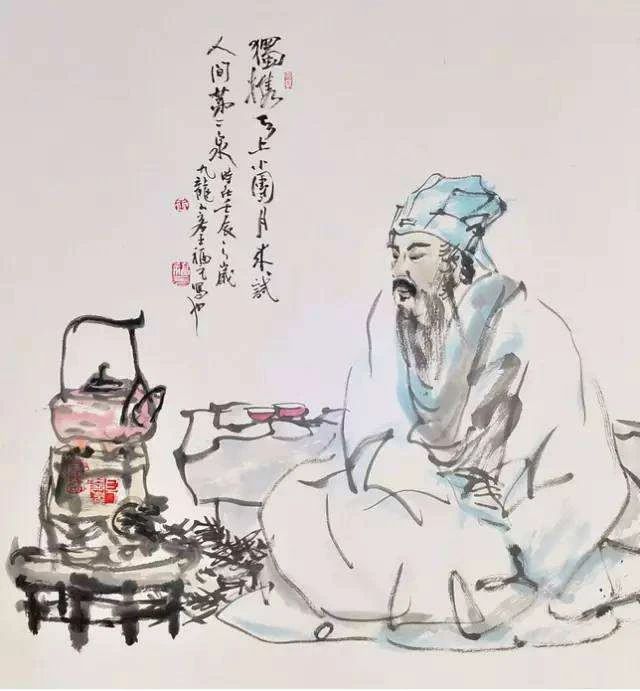 獨攜天上小團月來試
人間第二泉 時在壬辰之歲
九龍 寫